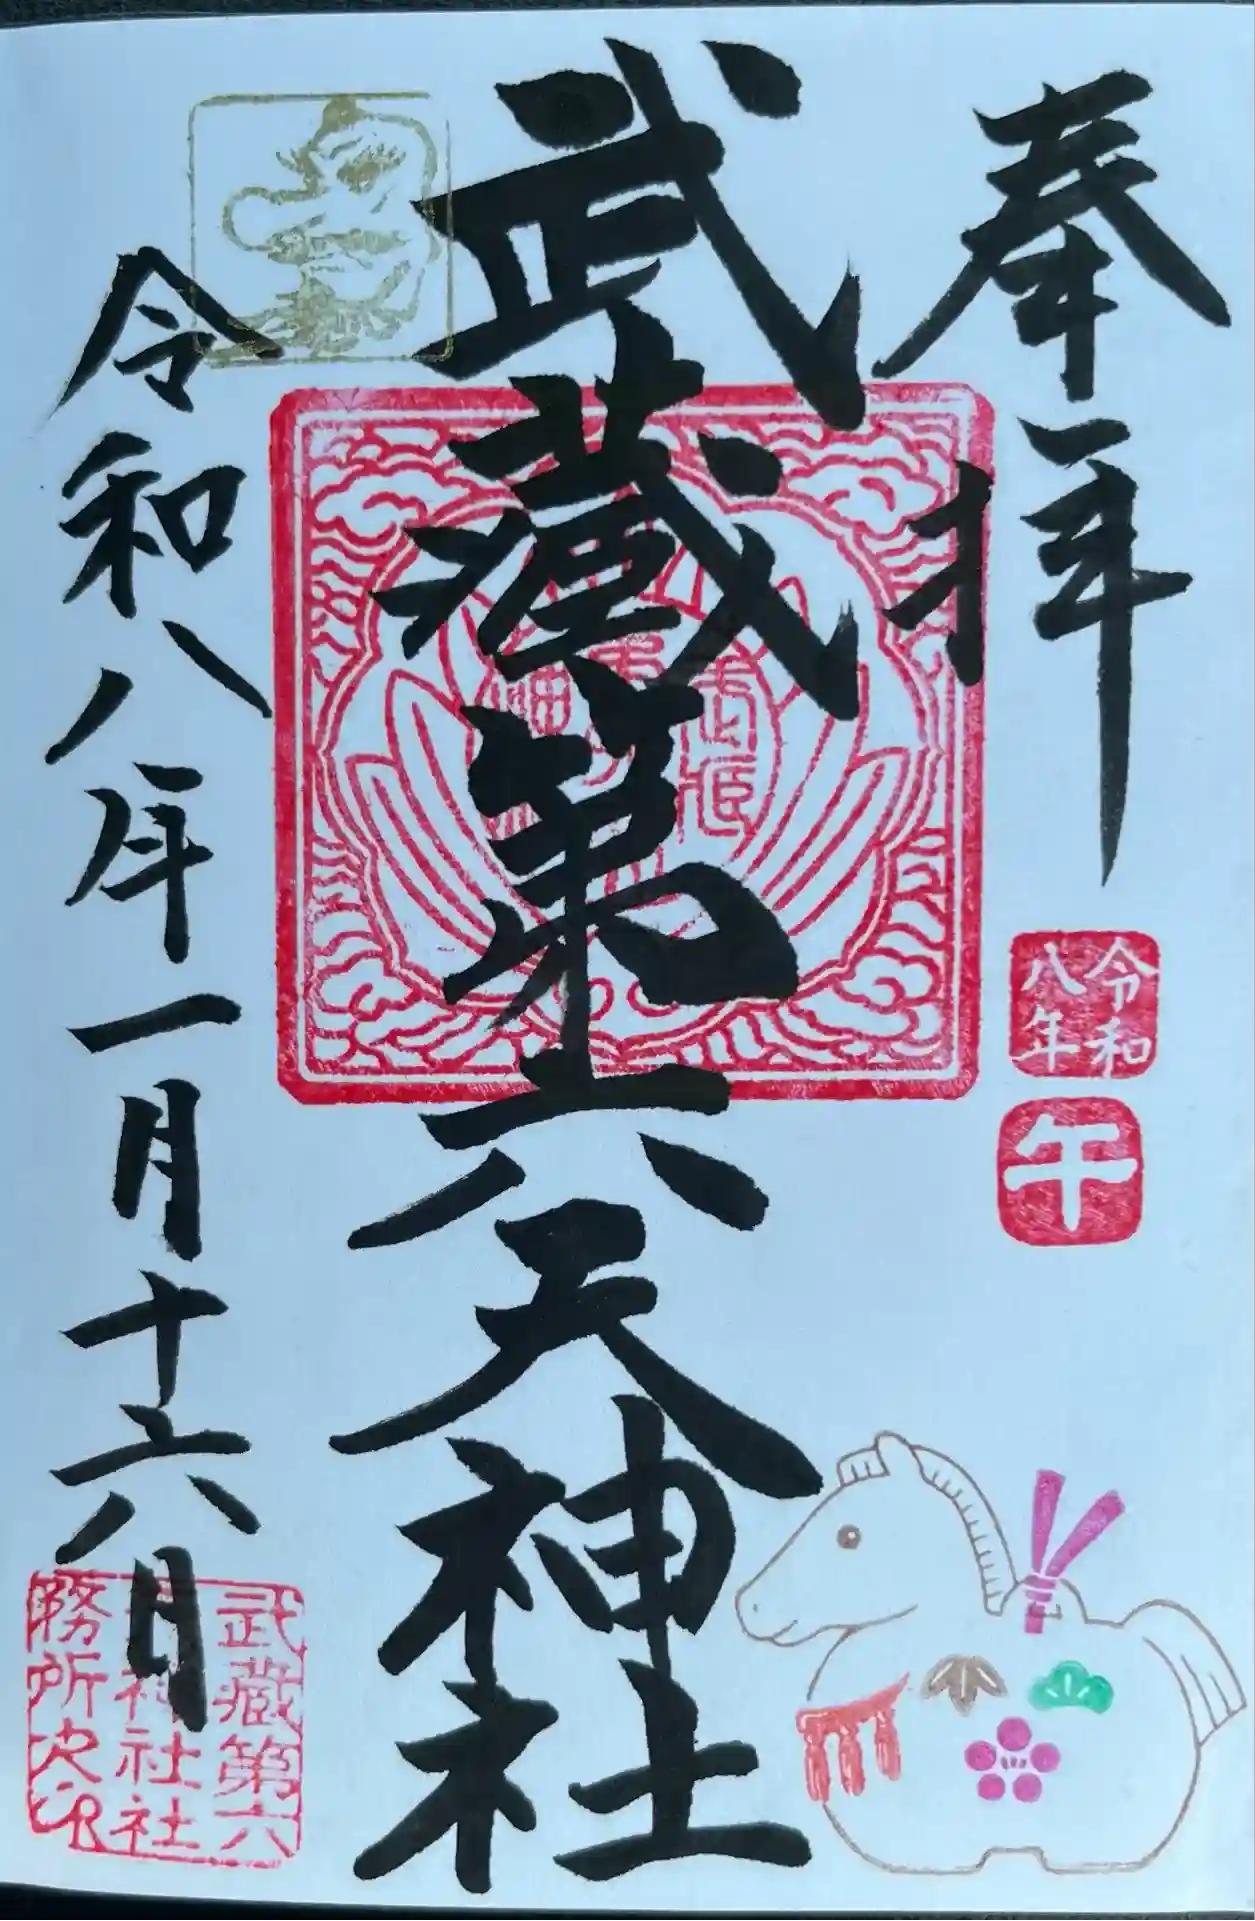 奉拝
令和
八年
午
武藏第六天神社
令和八年一月十六八月
武藏第六
神社社
務所之印